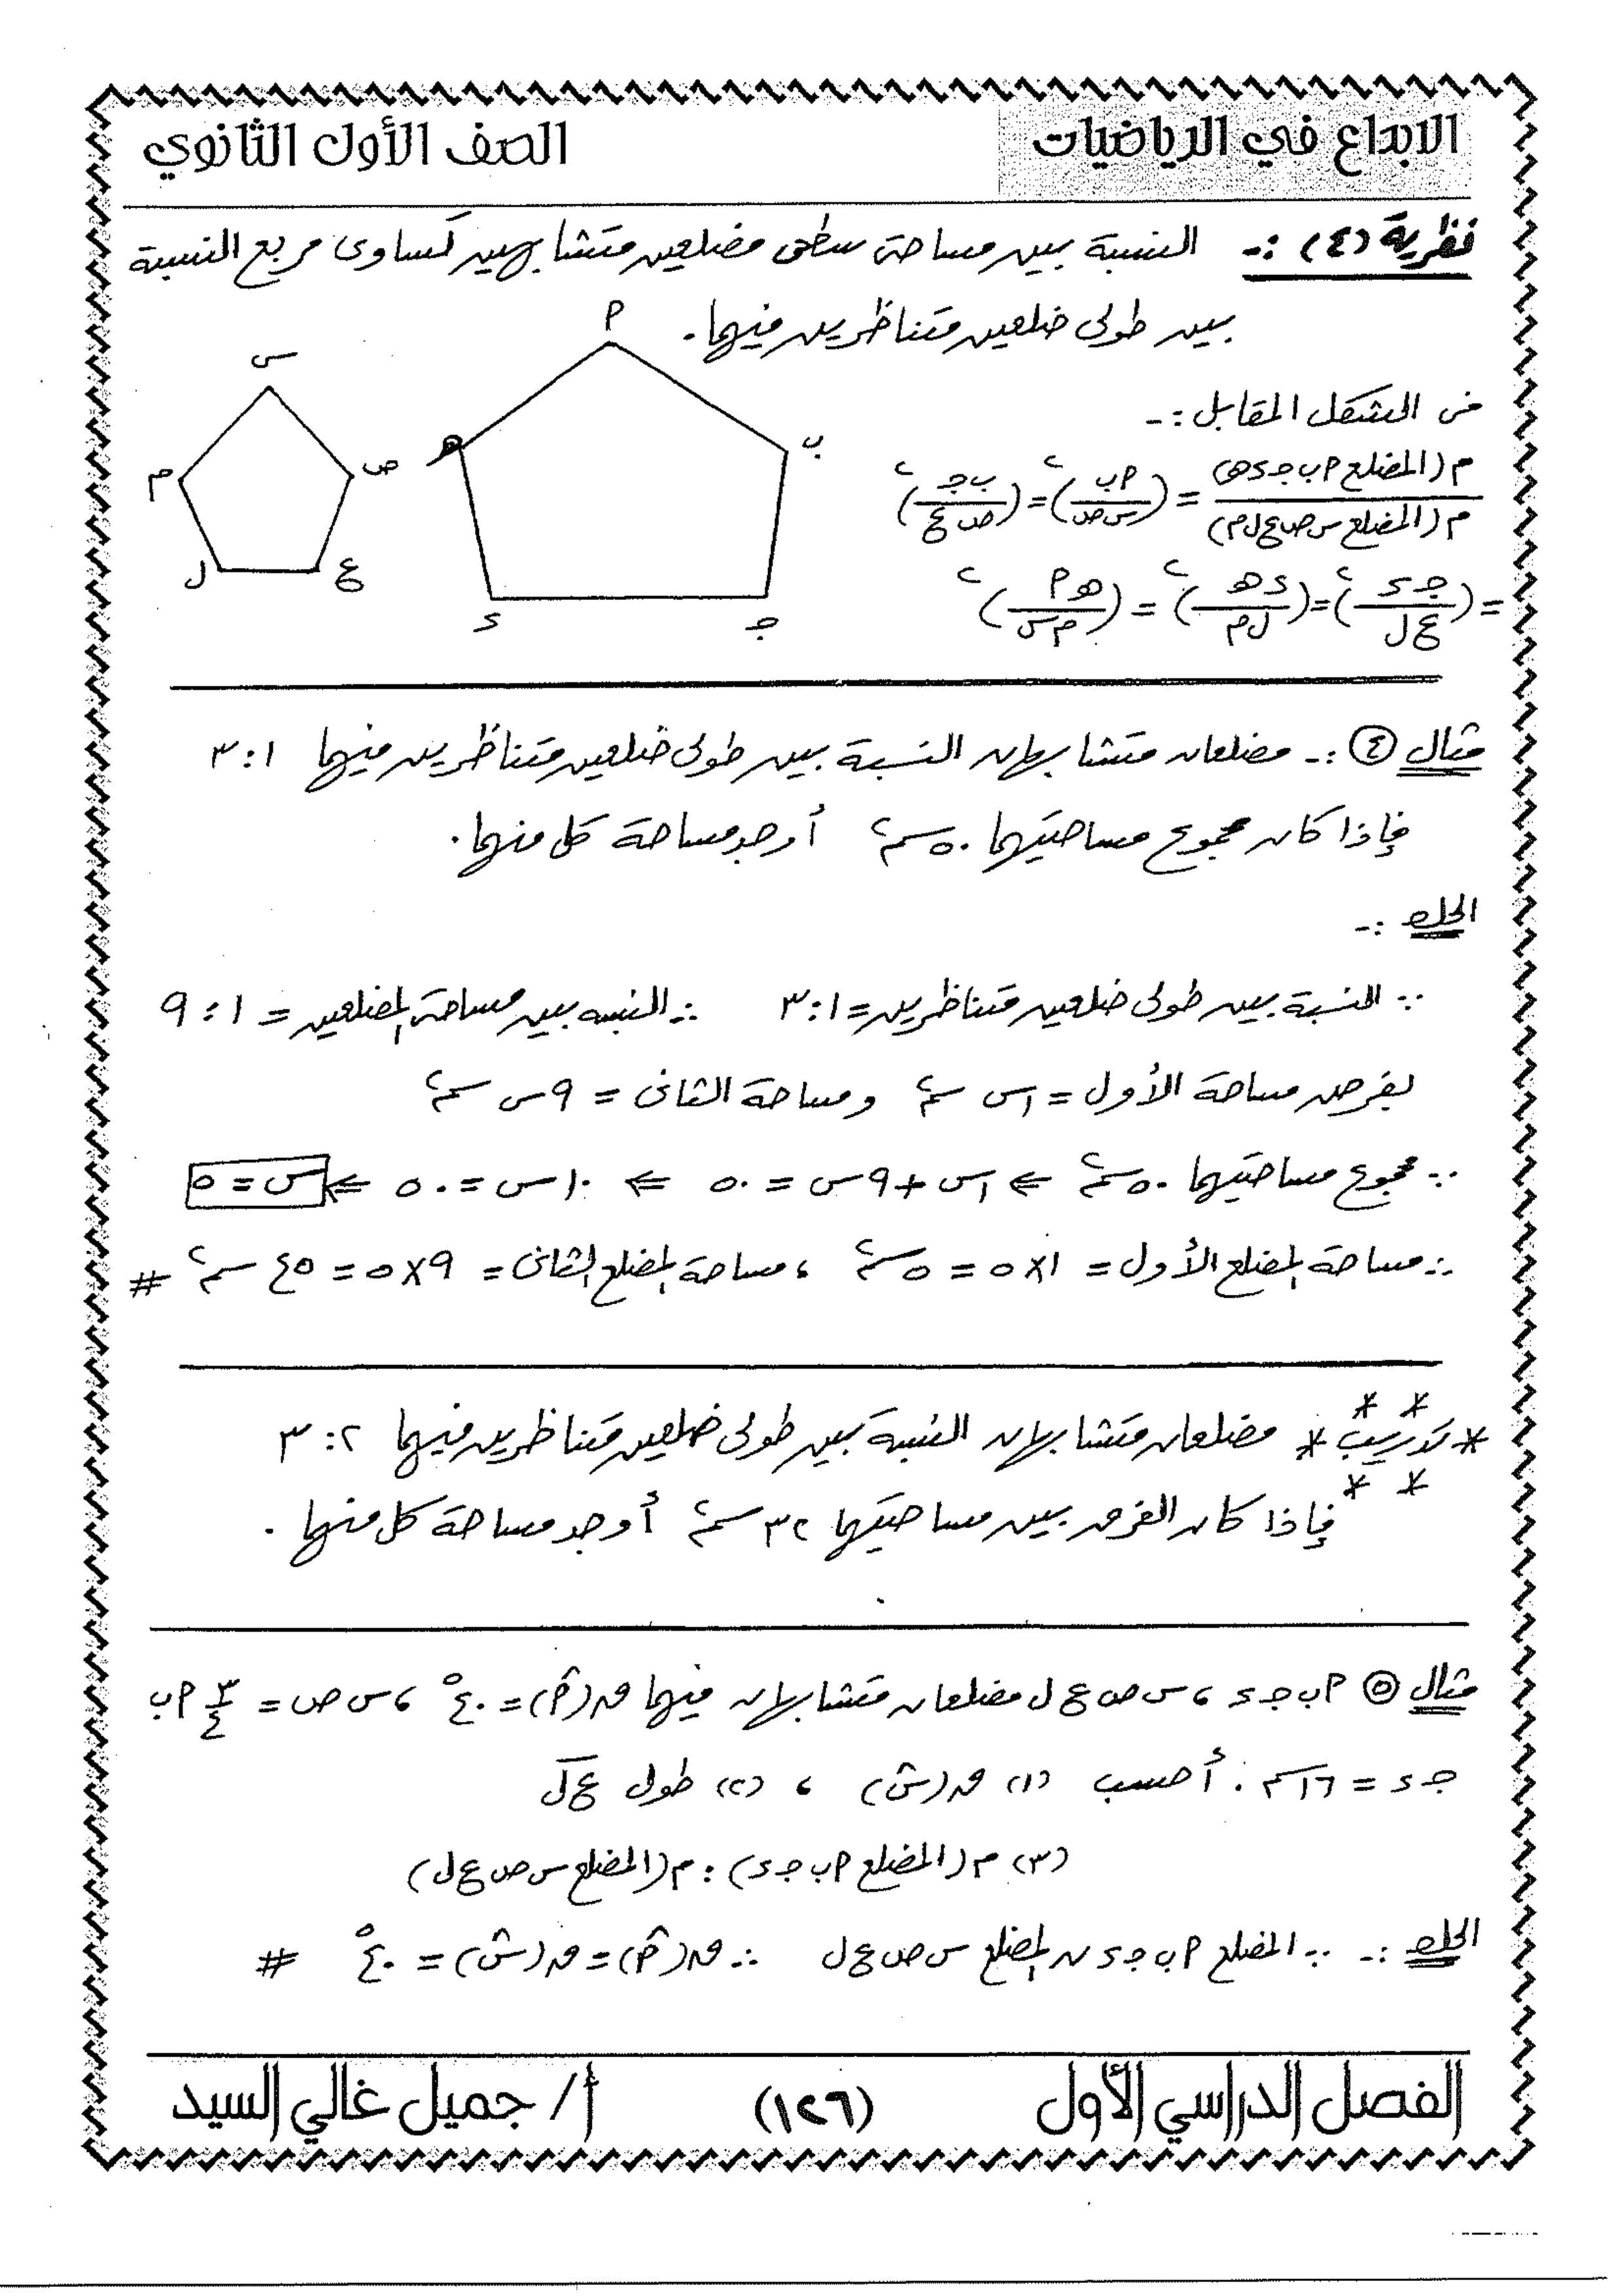 الابداع في الرياضيات
الصف الأول الثانوي
نظرية (٤) :- النسبة بين مساحتى سطحى مضلعين متشابهين تساوى مربع النسبة
بين طولى ضلعين متناظرين فيهما.
فى الشكل المقابل :-
م (المضلع أ ب جـ د هـ) / م (المضلع س ص ع ل م) = (أ ب / س ص)² = (ب جـ / ص ع)²
= (جـ د / ع ل)² = (د هـ / ل م)² = (هـ أ / م س)²
أ
ب
جـ
د
هـ
س
ص
ع
ل
م
مثال ④ :- مضلعان متشابهان النسبة بين طولى ضلعين متناظرين فيهما ١ : ٣
فإذا كان مجموع مساحتيهما ٥٠ سم² أوجد مساحة كل منهما.
الحل :-
∵ النسبة بين طولى ضلعين متناظرين = ١ : ٣ ∴ النسبه بين مساحتى المضلعين = ١ : ٩
بفرض مساحة الأول = ١س سم² ومساحة الثانى = ٩س سم²
∵ مجموع مساحتيهما ٥٠ سم² ⇐ ١س + ٩س = ٥٠ ⇐ ١٠س = ٥٠ ⇐ س = ٥
∴ مساحة المضلع الأول = ١×٥ = ٥ سم² ، مساحة المضلع الثانى = ٩×٥ = ٤٥ سم² #
* تدريب * مضلعان متشابهان النسبة بين طولى ضلعين متناظرين فيهما ٢ : ٣
فإذا كان الفرق بين مساحتيهما ٣٢ سم² أوجد مساحة كل منهما .
مثال ⑤ أ ب جـ د ، س ص ع ل مضلعان متشابهان فيهما ق(أ^) = ٤٠° ، س ص = ٣/٤ أ ب
جـ د = ١٦ سم . أحسب (١) ق(س^) ، (٢) طول ع ل
(٣) م (المضلع أ ب جـ د) : م (المضلع س ص ع ل)
الحل :- ∵ المضلع أ ب جـ د ~ المضلع س ص ع ل ∴ ق(أ^) = ق(س^) = ٤٠° #
الفصل الدراسي الأول
(١٢٦)
أ/ جميل غالي السيد